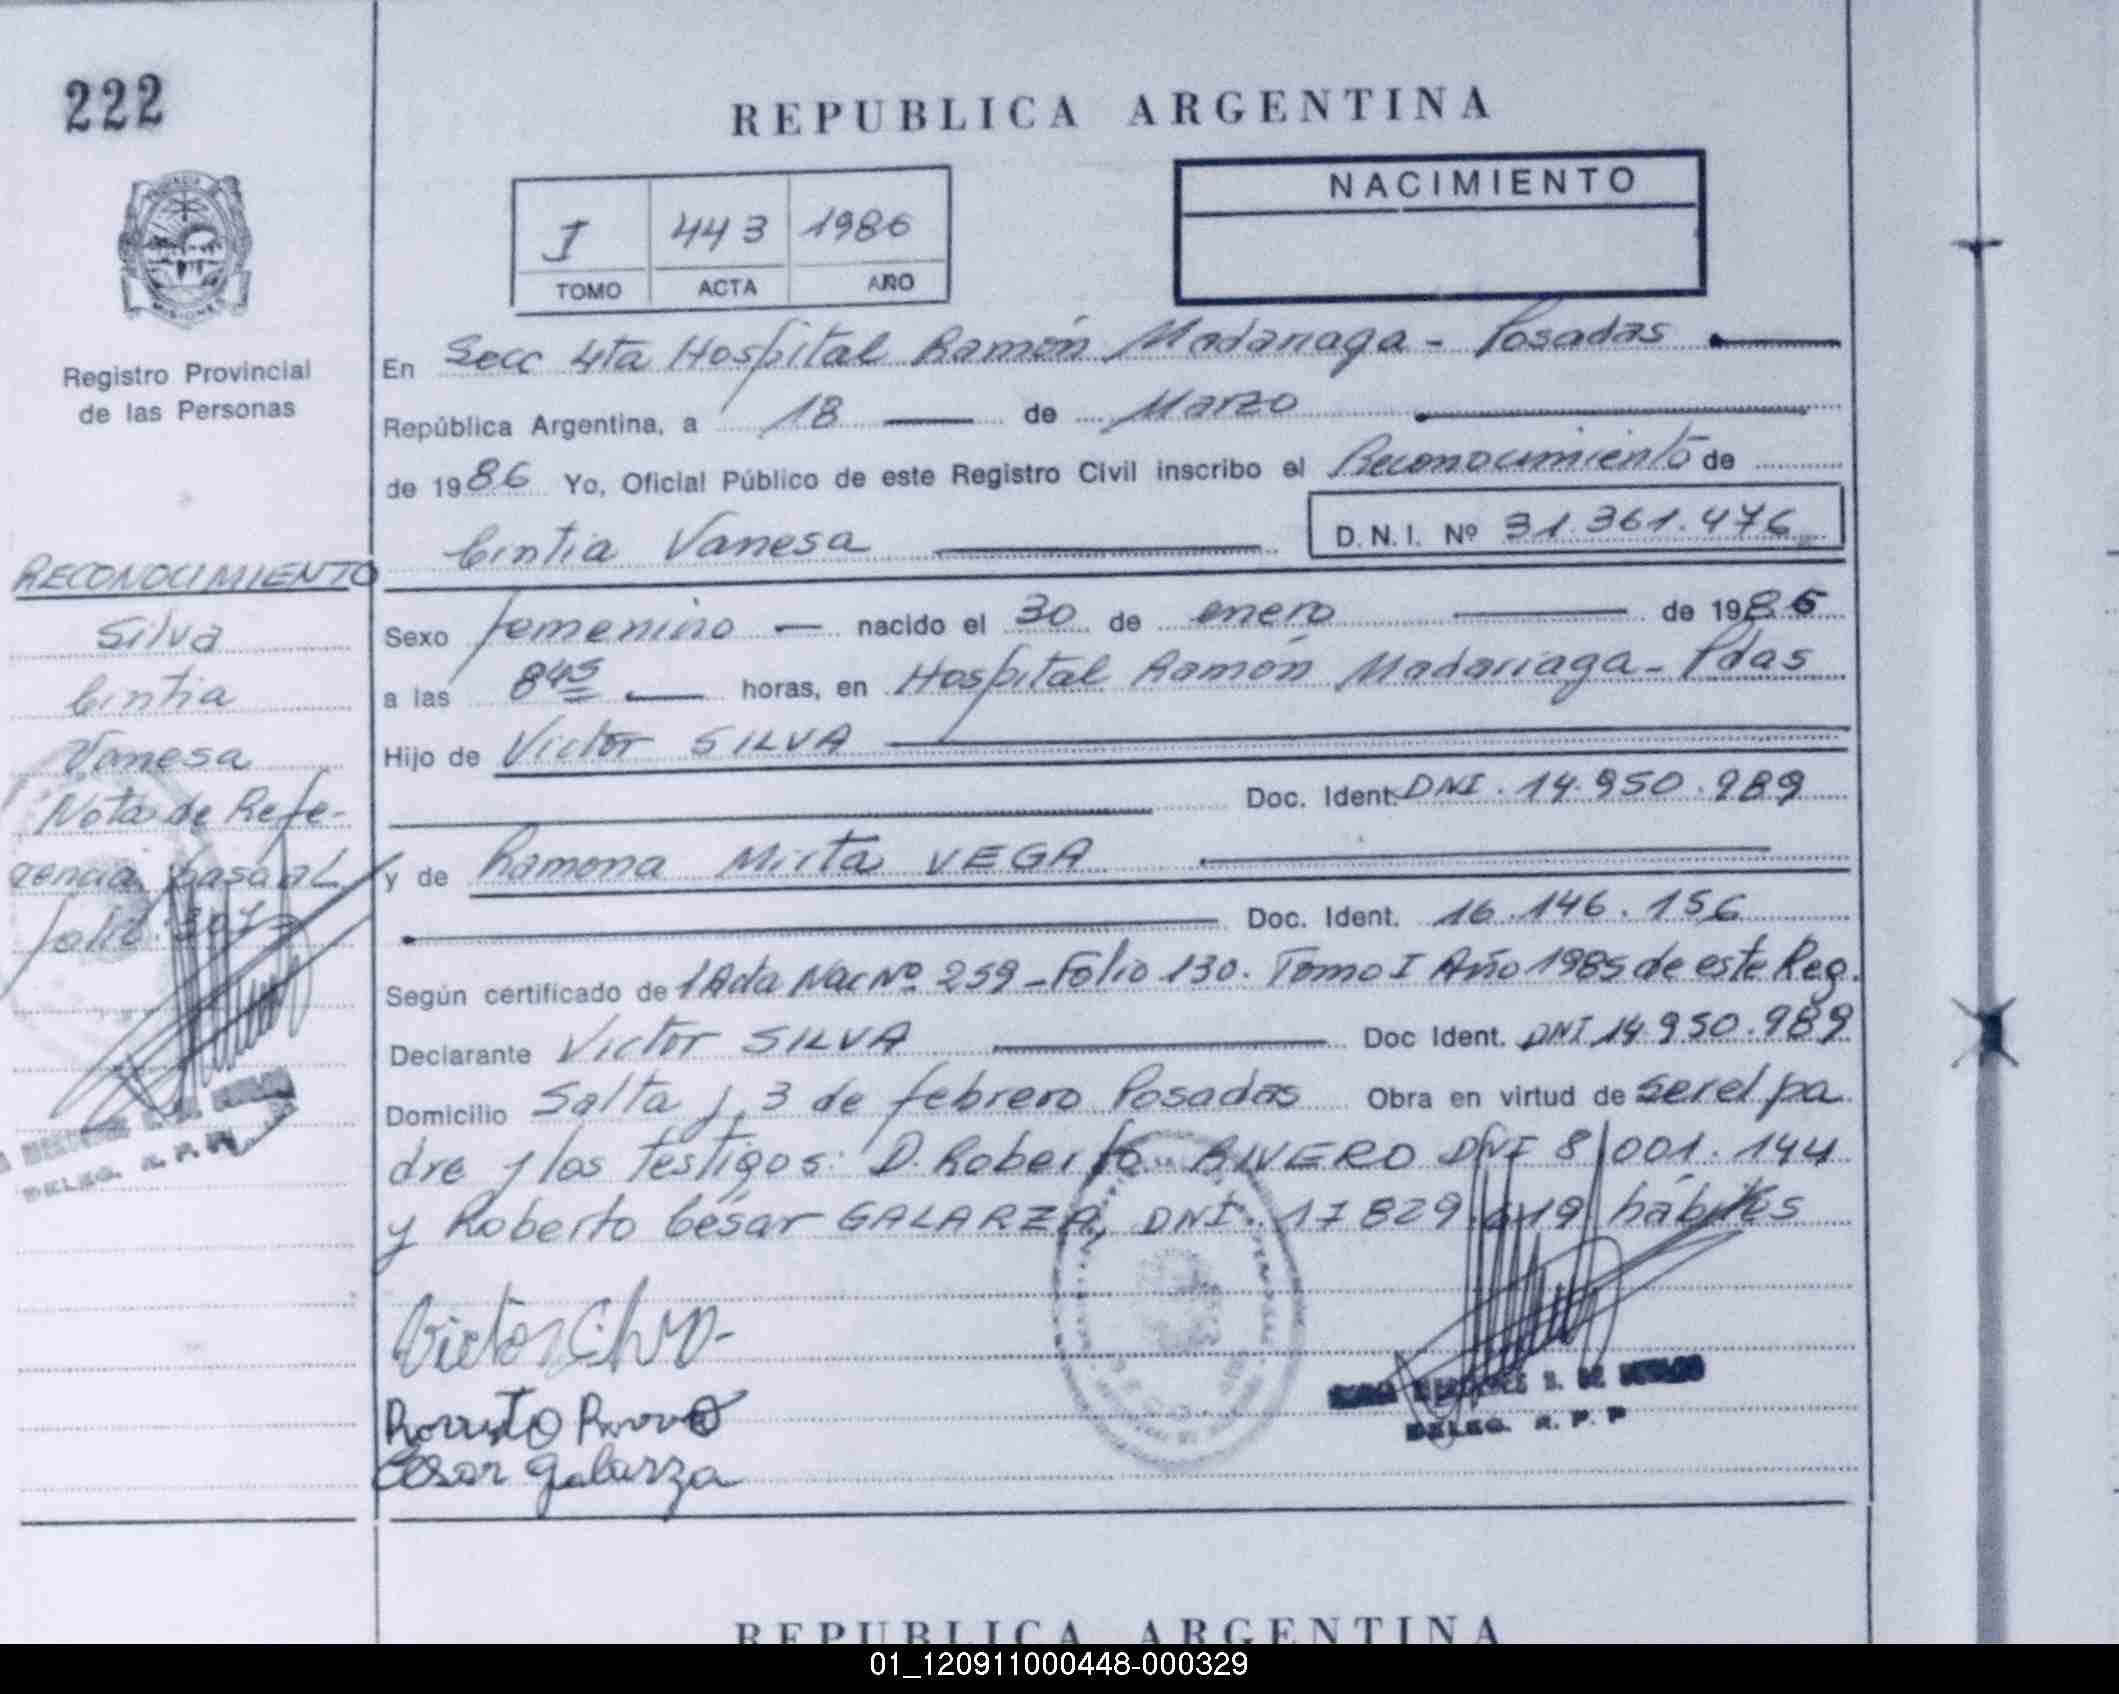 222
REPUBLICA ARGENTINA
I 443 1986
TOMO ACTA AÑO
NACIMIENTO
MISIONES
Registro Provincial
de las Personas
En Secc 4ta Hospital Ramón Madariaga - Posadas
República Argentina, a 18 de Marzo
de 1986 Yo, Oficial Público de este Registro Civil inscribo el Reconocimiento de
Cintia Vanesa D.N.I. Nº 31.361.476
Sexo femenino nacido el 30 de enero de 1985
a las 8 45 horas, en Hospital Ramón Madariaga - Pdas
Hijo de Victor SILVA
Doc. Ident. DNI. 14.950.989
y de Ramona Mirta VEGA
Doc. Ident. 16.146.156
Según certificado de Nac Nº 259 - Folio 130. Tomo I Año 1985 de este Reg.
Declarante Victor SILVA Doc Ident. DNI 14.950.989
Domicilio Salta y 3 de febrero Posadas Obra en virtud de ser el pa
dre y los testigos: D. Roberto RIVERO DNI 8.001.144
y Roberto César GALARZA, DNI. 17 829.619 hábiles
Victor Silva
Cesar Galarza
DELEG. R. P. P
RECONOCIMIENTO
Silva
Cintia
Vanesa
Nota de Refe-
rencia pasa al
folio 307
DELEG. R. P. P.
REPUBLICA ARGENTINA
01_120911000448-000329